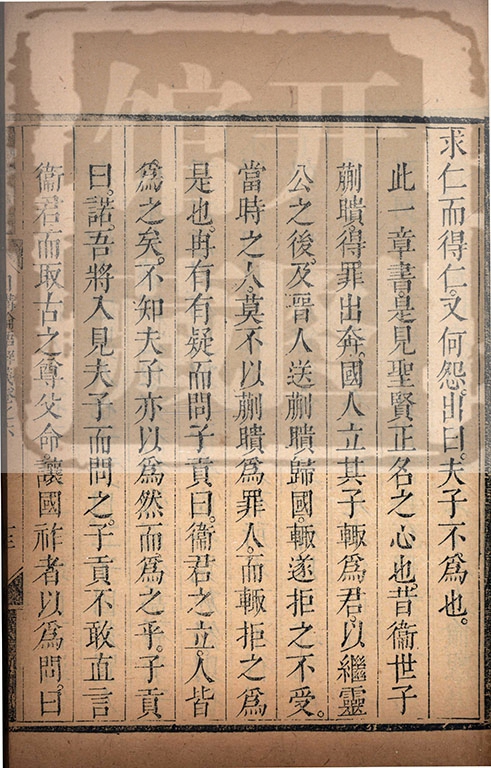 求仁而得仁。又何怨。出曰。夫子不爲也。
此一章書。是見聖賢正名之心也。昔衞世子
蒯聵。得罪出奔。國人立其子輒爲君。以繼靈
公之後。及晉人送蒯聵歸國。輒遂拒之不受。
當時之人。莫不以蒯聵爲罪人。而輒拒之爲
是也。冉有有疑而問子貢曰。衞君之立。人皆
爲之矣。不知夫子亦以爲然而爲之乎。子貢
曰。諾。吾將入見夫子而問之。子貢不敢直言
衞君。而取古之尊父命。讓國祚者以爲問。曰